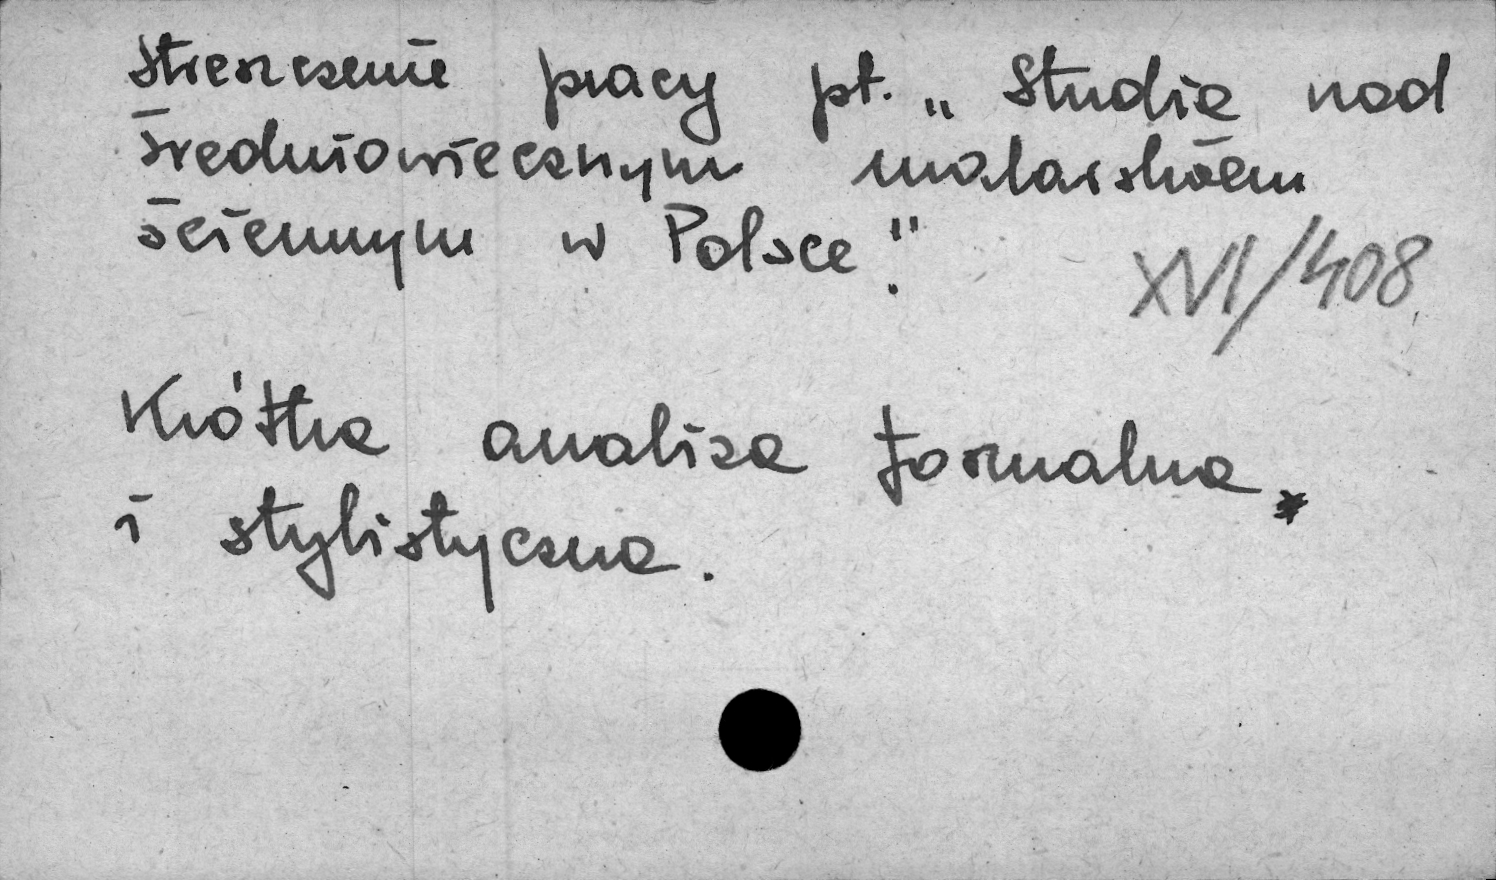 streszczenie pracy pt. „Studia nad
średniowiecznym malarstwem
ściennym w Polsce".
XVI/408
Krótka analiza formalna
i stylistyczna.